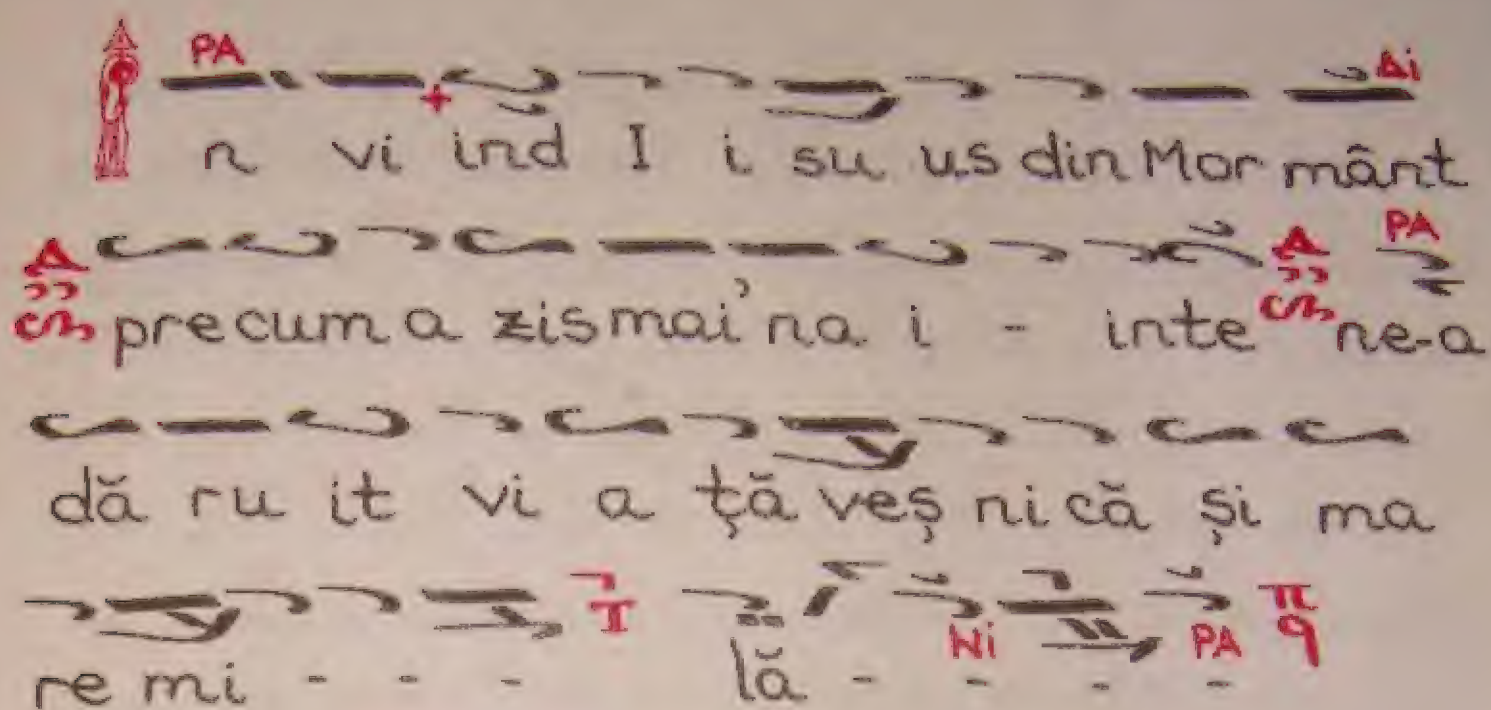 PA Δi
În vi ind I i su us din Mor mânt
Δ PA
pre cum a zis mai 'na i - inte ne-a
dă ru it vi a ță veș nică și ma
Ni PA π q
re mi - - - lă - - - -